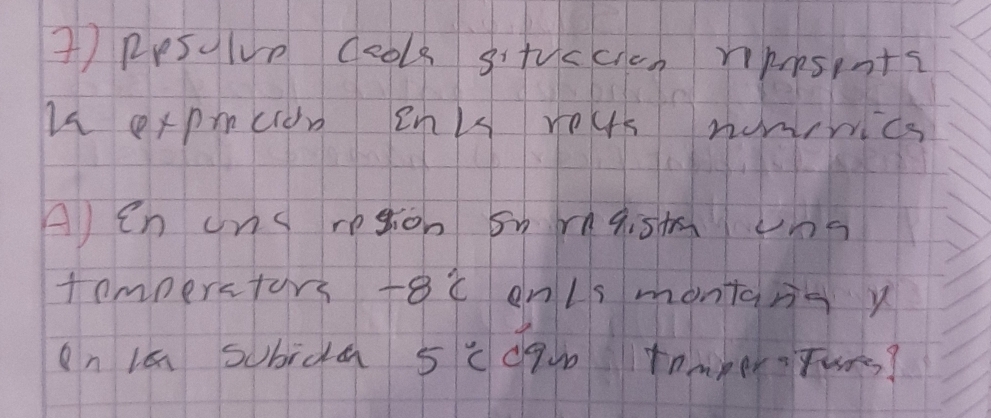 7) Resulve cada situacion represente
la exprecion en la recta numerica
A) En una region se registra una
temperatura -8°c en la montaña y
en la subida 5°c ¿que temperatura?